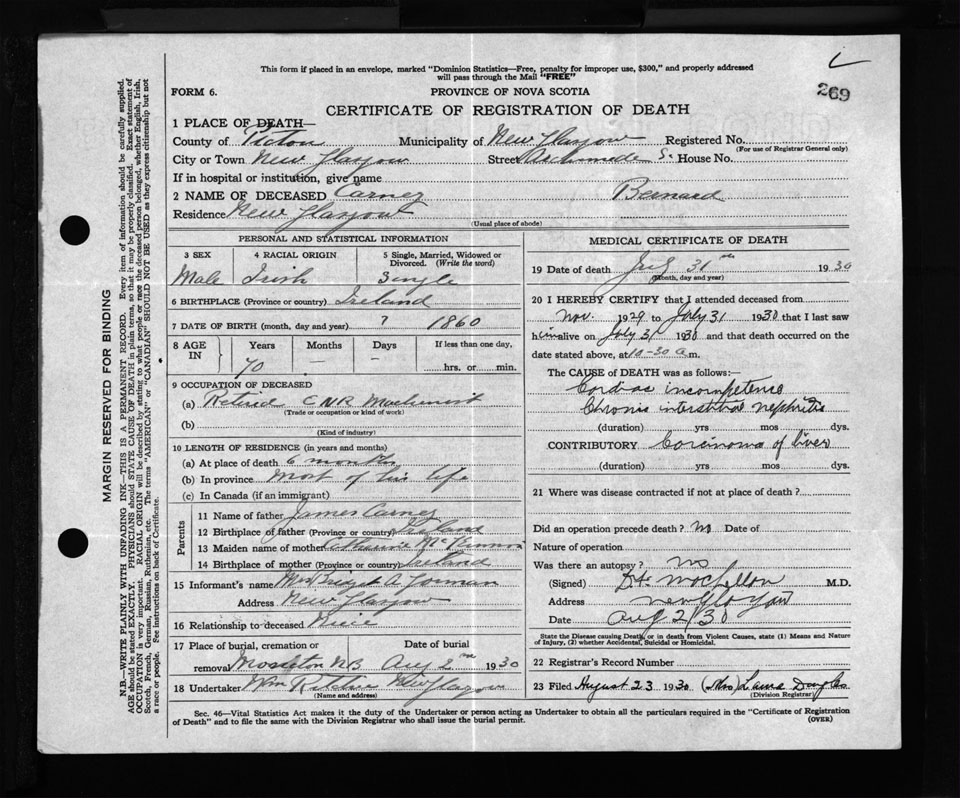 This form if placed in an envelope, marked "Dominion Statistics—Free, penalty for improper use, $300," and properly addressed
will pass through the Mail "FREE"
269
FORM 6.
PROVINCE OF NOVA SCOTIA
CERTIFICATE OF REGISTRATION OF DEATH
1 PLACE OF DEATH—
County of Pictou Municipality of New Glasgow Registered No.
(For use of Registrar General only)
City or Town New Glasgow Street Archimedes S. House No.
If in hospital or institution, give name
2 NAME OF DECEASED Carney Bernard
Residence New Glasgow
(Usual place of abode)
PERSONAL AND STATISTICAL INFORMATION
3 SEX 4 RACIAL ORIGIN 5 Single, Married, Widowed or
Divorced. (Write the word)
Male Irish Single
6 BIRTHPLACE (Province or country) Ireland
7 DATE OF BIRTH (month, day and year) ? 1860
8 AGE IN Years Months Days If less than one day,
70 - - hrs. or min.
9 OCCUPATION OF DECEASED
(a) Retired CNR Machinist
(Trade or occupation or kind of work)
(b)
(Kind of industry)
10 LENGTH OF RESIDENCE (in years and months)
(a) At place of death 6 months
(b) In province Most of his life
(c) In Canada (if an immigrant)
Parents
11 Name of father James Carney
12 Birthplace of father (Province or country) Ireland
13 Maiden name of mother Catherine
14 Birthplace of mother (Province or country) Ireland
15 Informant's name Mrs Bridget A
Address New Glasgow
16 Relationship to deceased Niece
17 Place of burial, cremation or removal Date of burial
Moncton NB Aug 2nd 1930
18 Undertaker Wm Ritchie New Glasgow
(Name and address)
MEDICAL CERTIFICATE OF DEATH
19 Date of death July 31 1930
(Month, day and year)
20 I HEREBY CERTIFY that I attended deceased from
Nov. 1929 to July 31 1930 that I last saw
him alive on July 31 1930 and that death occurred on the
date stated above, at 10-30 a.m.
The CAUSE of DEATH was as follows:—
Cardiac incompetence
Chronic interstitial nephritis
(duration) yrs mos dys.
CONTRIBUTORY Carcinoma of liver
(duration) yrs mos dys.
21 Where was disease contracted if not at place of death?
Did an operation precede death? no Date of
Nature of operation
Was there an autopsy? no
(Signed) M.D.
Address New Glasgow
Date Aug 2/30
State the Disease causing Death, or in death from Violent Causes, state (1) Means and Nature
of Injury, (2) whether Accidental, Suicidal or Homicidal.
22 Registrar's Record Number
23 Filed August 23 1930 (Mrs) Laura Douglas
(Division Registrar)
Sec. 46—Vital Statistics Act makes it the duty of the Undertaker or person acting as Undertaker to obtain all the particulars required in the "Certificate of Registration
of Death" and to file the same with the Division Registrar who shall issue the burial permit.
(OVER)
MARGIN RESERVED FOR BINDING
N.B.—WRITE PLAINLY WITH UNFADING INK—THIS IS A PERMANENT RECORD. Every item of information should be carefully supplied.
AGE should be stated EXACTLY. PHYSICIANS should STATE CAUSE OF DEATH in plain terms, so that it may be properly classified. Exact statement of
OCCUPATION is very important. RACIAL ORIGIN will be described by stating to what people or race the deceased person belonged, whether English, Irish,
Scotch, French, German, Russian, Ruthenian, etc. The terms "AMERICAN" or "CANADIAN" SHOULD NOT BE USED as they express citizenship but not
a race or people. See instructions on back of Certificate.